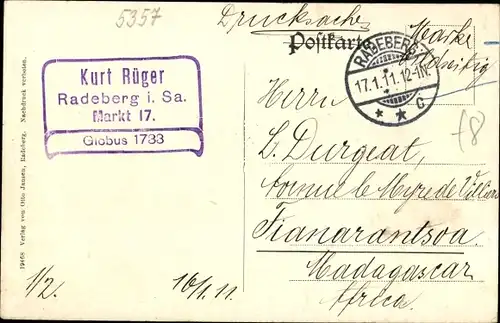 5357
Drucksache
Postkarte
Marke
RADEBERG
17.1.11.12-1N.
* * c
Kurt Rüger
Radeberg i. Sa.
Markt 17.
Globus 1733
19468 Verlag von Otto Jansen, Radeberg. Nachdruck verboten.
Herrn
Durgeat,
Fianarantsoa.
Madagascar
Africa.
1/2.
16/1.11.
f8